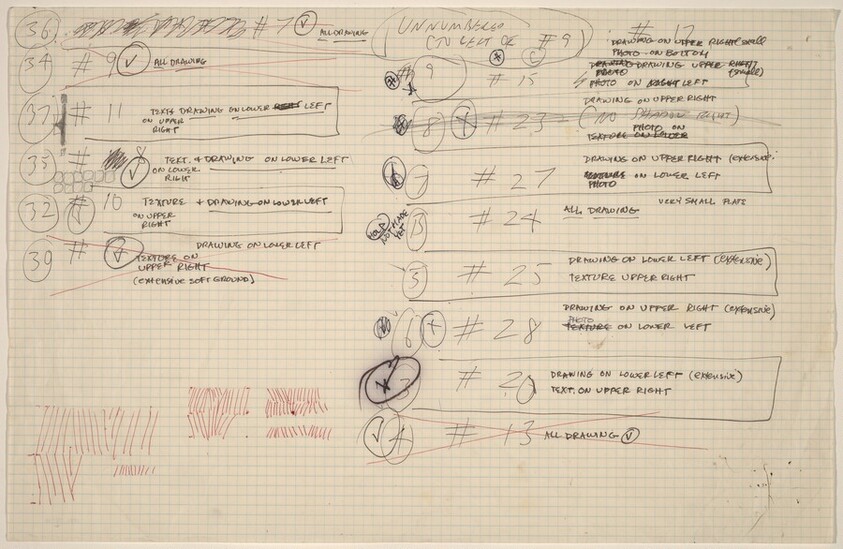 36 # 7 ALL DRAWING
34 # 9 ALL DRAWING
37 # 11 TEXT & DRAWING ON LOWER LEFT
ON UPPER
RIGHT
35 # 8 TEXT. & DRAWING ON LOWER LEFT
ON LOWER
RIGHT
32 # 10 TEXTURE & DRAWING ON LOWER LEFT
ON UPPER
RIGHT
39 # DRAWING ON LOWER LEFT
TEXTURE ON
UPPER RIGHT
(EXTENSIVE SOFT GROUND)
UNNUMBERED
TO LEFT OF # 9
# 17
DRAWING ON UPPER RIGHT (small)
PHOTO - ON BOTTOM
9 # 15 DRAWING UPPER RIGHT
(small)
PHOTO ON LEFT
DRAWING ON UPPER RIGHT
8 # 23 (NO SHADOW RIGHT)
PHOTO ON
TEXTURE ON LOWER
7 # 27 DRAWING ON UPPER RIGHT (extensive
TEXTURE ON LOWER LEFT
PHOTO
VERY SMALL PLATE
HOLD
NOT MADE
YET
# 24 ALL DRAWING
5 # 25 DRAWING ON LOWER LEFT (extensive)
TEXTURE UPPER RIGHT
6 # 28 DRAWING ON UPPER RIGHT (extensive)
PHOTO
TEXTURE ON LOWER LEFT
# 20 DRAWING ON LOWER LEFT (extensive)
TEXT. ON UPPER RIGHT
# 13 ALL DRAWING